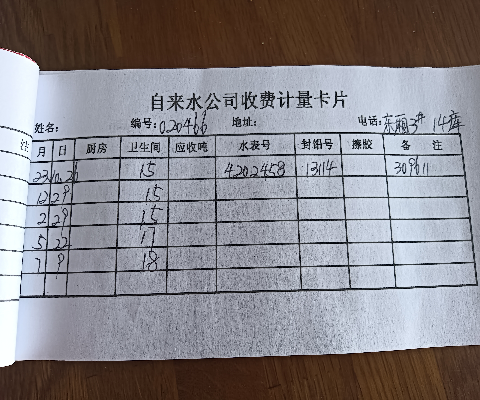 自来水公司收费计量卡片
姓名: 编号: 020466 地址: 电话: 东厢3# 14库
月 日 厨房 卫生间 应收吨 水表号 封铅号 擦胶 备 注
23 10.26 15 4202458 13114 309611
12 29 15
2 29 15
5 22 17
7 9 18